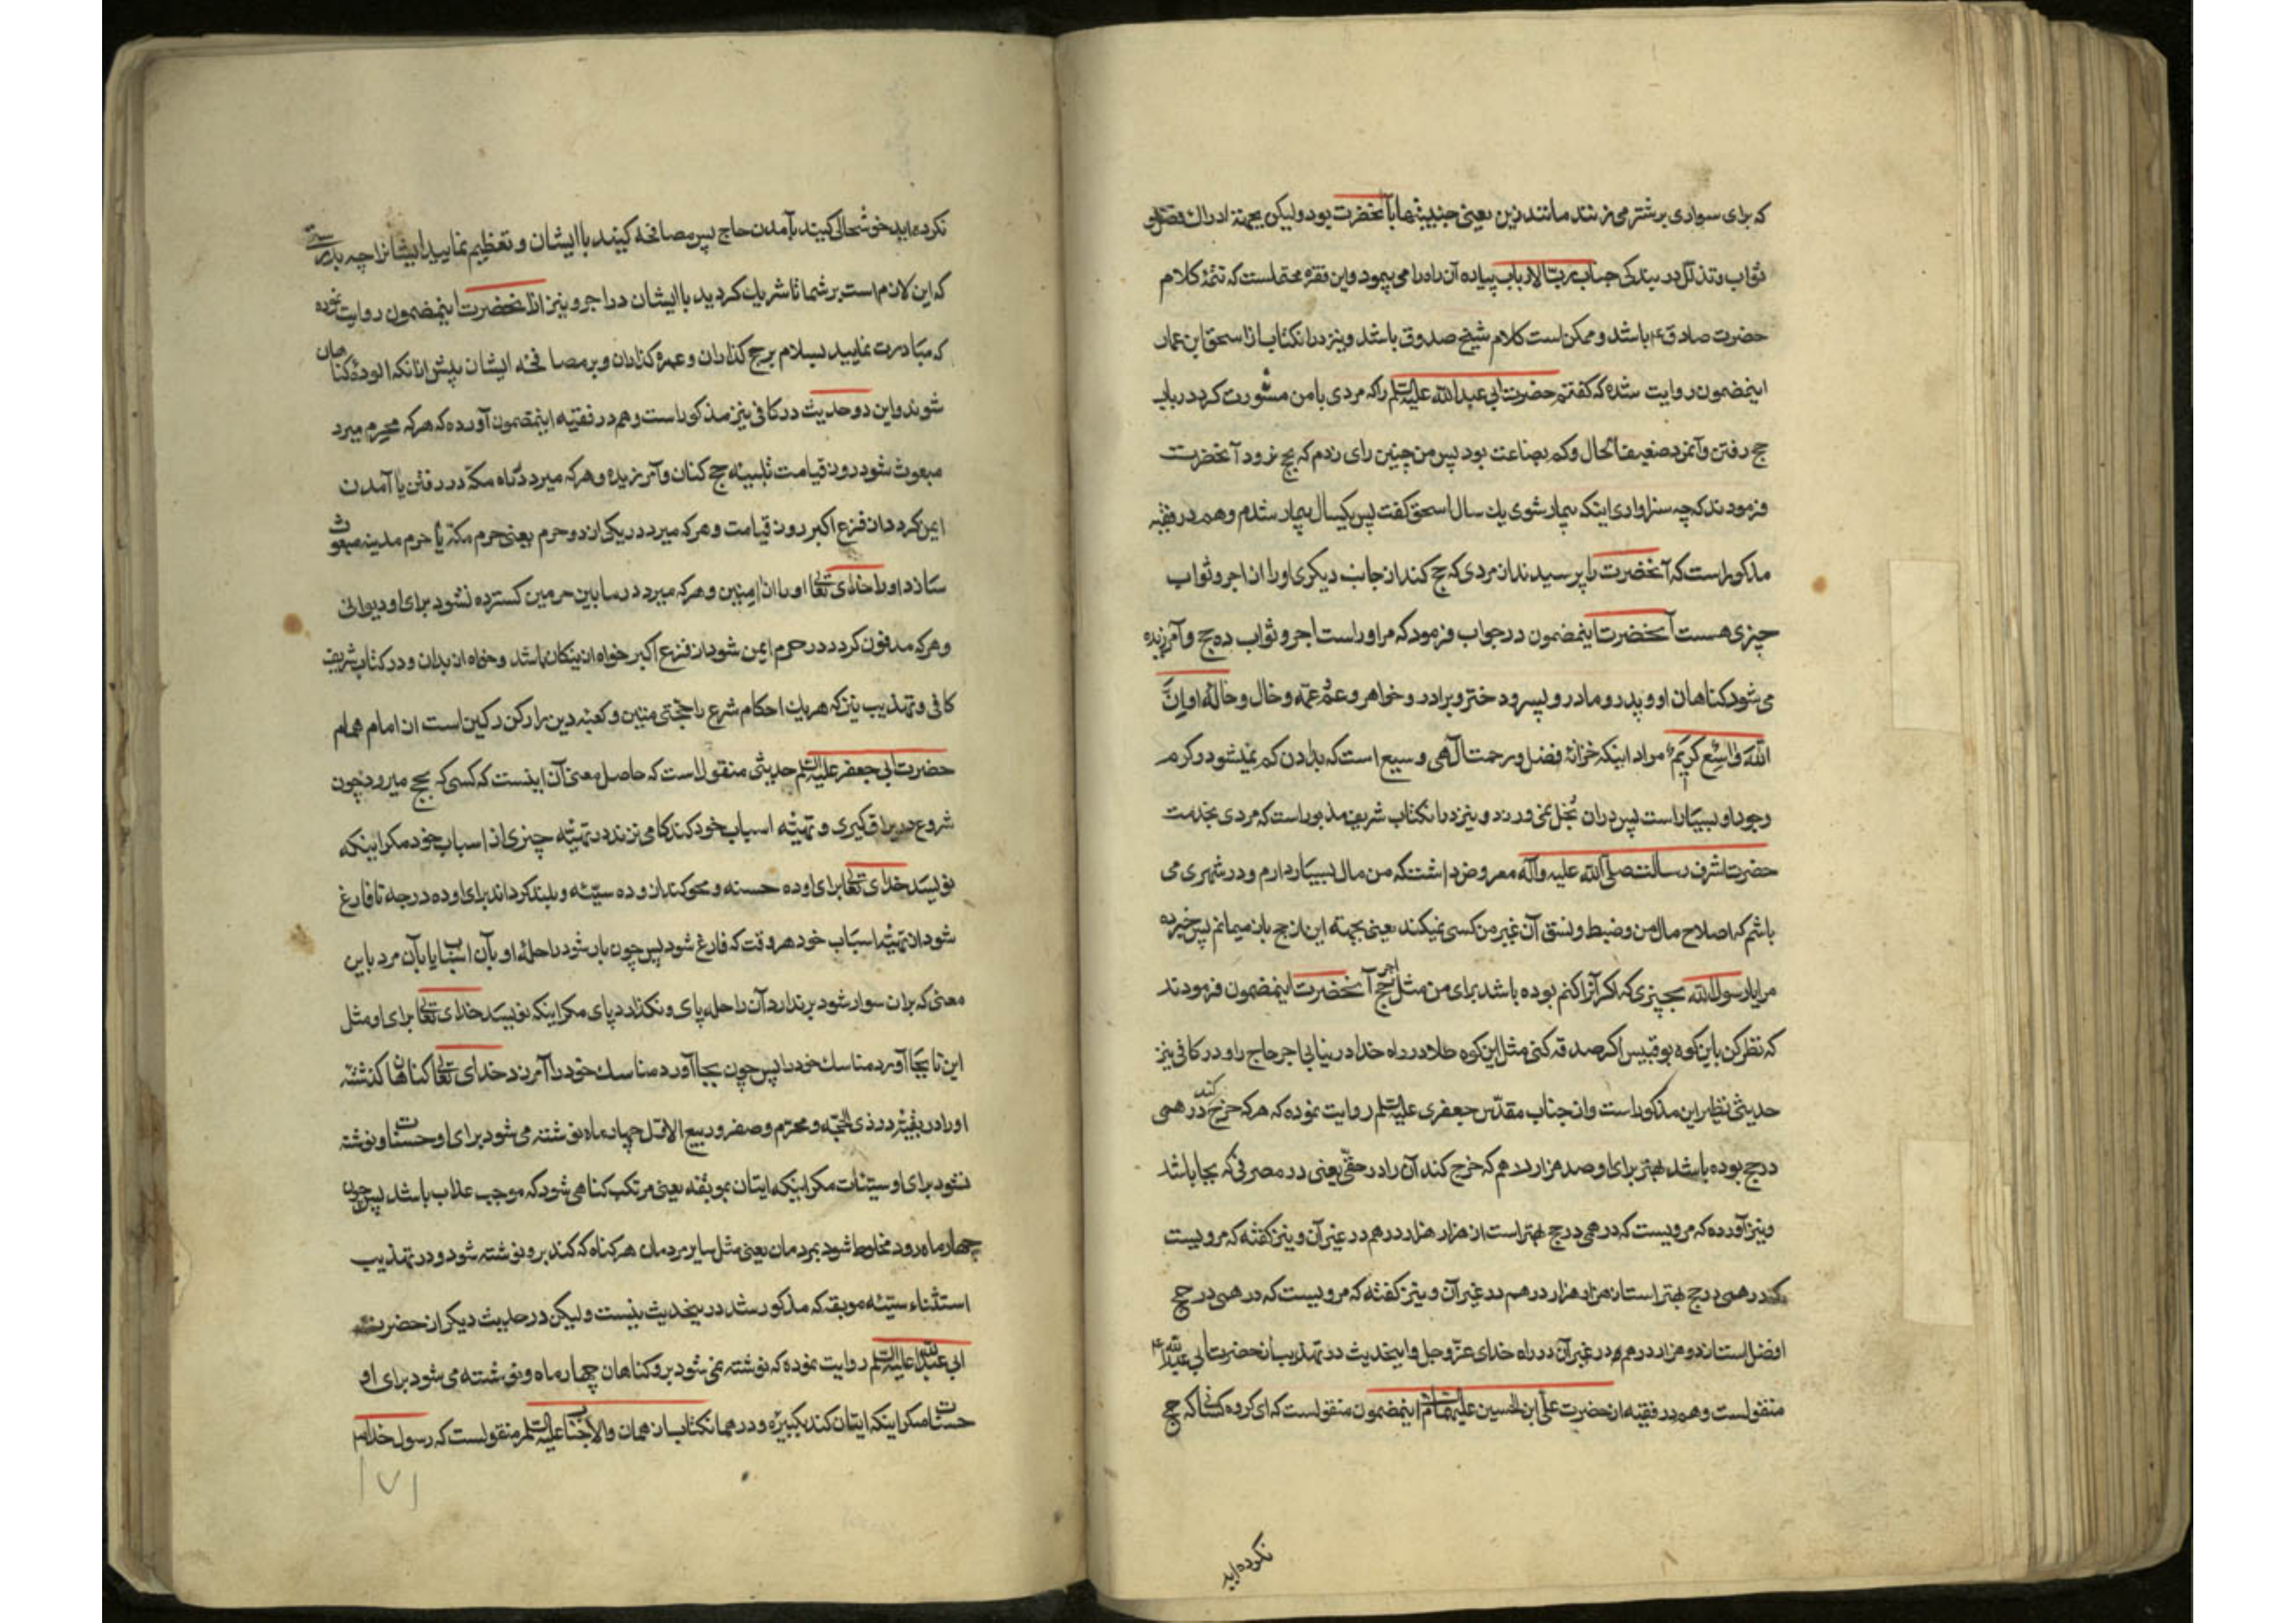 که برای سواری بر شتر می‌زنند مانند زین یعنی جنیبتها با آنحضرت بود ولیکن بجهة ادراک فضل و
ثواب و تذلل در بندکی جناب رب الارباب پیاده آن راه را می پیمود و این فقره محتملست که تتمهٔ کلام
حضرت صادق ع باشد و ممکن است کلام شیخ صدوق باشد و نیز در انکتاب از اسحق ابن عمار
اینمضمون روایت شده که کفتم حضرت ابی عبد الله علیه السلم را که مردی با من مشورت کرد در باب
حج رفتن و آنمرد ضعیف الحال و کم بضاعت بود پس من چنین رای زدم که بحج نرود آنحضرت
فرمودند که چه سزاواری اینکه بیمار شوی یك سال اسحق کفت پس یکسال بیمار شدم و هم در فقیه
مذکور است که آنحضرت را پرسیدند از مردی که حج کند از جانب دیکری او را از اجر و ثواب
چیزی هست آنحضرت اینمضمون در جواب فرمود که مر او راست اجر و ثواب ده حج و آمرزیده
می شود کناهان او و پدر و مادر و پسر و دختر و برادر و خواهر و عم و عمه و خال و خالهٔ او ان
الله واسع کریم مراد اینکه خزانهٔ فضل و رحمت آلهی وسیع است که بدادن کم نمیشود و کرم
وجود او بسیار است پس در ان بخل نمی ورزد و نیز در انکتاب شریف مذبور است که مردی بخدمت
حضرت اشرف رسالت صلی الله علیه و آله معروض داشت که من مال بسیار دارم و در شهری می
باشم که اصلاح مال من و ضبط و نسق آن غیر من کسی نمیکند یعنی بجهته این از حج باز میمانم پس خبر ده
مرا یا رسول الله بچیزی که اکر آنرا کنم بوده باشد برای من مثل اجر حج آنحضرت اینمضمون فرمودند
که نظر کن باین کوه بوقبیس اکر صدقه کنی مثل این کوه طلا در راه خدا در نیابی اجر حاج را و در کافی نیز
حدیثی نظیر این مذکور است و از جناب مقدس جعفری علیه السلم روایت نموده که هر که خرج کند درهمی
در حج بوده باشد بهتر برای او صد هزار درهم که خرج کند آن را در حقی یعنی در مصرفی که بجا باشد
و نیز آورده که مرویست که درهمی در حج بهتر است از هزار هزار درهم در غیر آن و نیز کفته که مرویست
که درهمی در حج بهتر است از هزار هزار درهم در غیر آن و نیز کفته که مرویست که درهمی در حج
افضل است از دو هزار درهم در غیر آن در راه خدای عز و جل و اینحدیث در تهذیب از حضرت ابی عبد الله ع
منقولست و هم در فقیه از حضرت علی ابن الحسین علیهما السلام اینمضمون منقولست که ای کروه کسانی که حج
نکرده اید
نکرده اید خوشحالی کنید بآمدن حاج پس مصافحه کنید با ایشان و تعظیم نمایید ایشانرا چه بدرستی
که این لازم است بر شما تا شریك کردید با ایشان در اجر و نیز از آنحضرت اینمضمون روایت نموده
که مبادرت نمایید بسلام بر حج کذاران و عمره کذاران و بر مصافحه ایشان پیش از انکه الوده کناهان
شوند و این دو حدیث در کافی نیز مذکور است و هم در فقیه اینمضمون آورده که هر که محرم میرد
مبعوث شود روز قیامت تلبیه حج کنان و آمرزیده و هر که میرد در راه مکه در رفتن یا آمدن
ایمن کردد از فزع اکبر روز قیامت و هر که میرد در یکی از دو حرم یعنی حرم مکه یا حرم مدینه مبعوث
سازد او را خدای تعالی او را از امنین و هر که میرد در ما بین حرمین کسترده نشود برای او دیوانی
و هر که مدفون کردد در حرم ایمن شود از فزع اکبر خواه از نیکان باشد و خواه از بدان و در کتاب شریف
کافی و تهذیب نیز که هر یك احکام شرع را حجتی متین و کعبه دین را رکن رکین است از امام همام
حضرت ابی جعفر علیه السلم حدیثی منقولست که حاصل معنی آن اینست که کسی که بحج میرود چون
شروع در یراق کیری و تهیئه اسباب خود کند کامی نزند در تهیئه چیزی از اسباب خود مکر اینکه
نویسد خدای تعالی برای او ده حسنه و محو کند از و ده سیئه و بلند کرداند برای او ده درجه تا فارغ
شود از تهیئه اسباب خود هر وقت که فارغ شود پس چون بار شود راحلهٔ او بآن اسباب یا بآن مرد باین
معنی که بر ان سوار شود بر ندارد آن راحله پای و نکذارد پای مکر اینکه نویسد خدای تعالی برای او مثل
این تا بجا آورد مناسك خود را پس چون بجا آورد مناسك خود را آمرزد خدای تعالی کناهان کذشته
او را در بقیه ذی الحجه و محرم و صفر و ربیع الاول چهار ماه نوشته می شود برای او حسنات و نوشته
نشود برای او سیئات مکر اینکه ایتان بموبقه یعنی مرتکب کناهی شود که موجب عذاب باشد پس چون
چهار ماه رود مخلوط شود بمردمان یعنی مثل سایر مردمان هر کناه که کند بر و نوشته شود و در تهذیب
استثناء سیئه موبقه که مذکور شد در ینحدیث نیست و لیکن در حدیث دیکر از حضرت
ابی عبد الله علیه السلم روایت نموده که نوشته نمی شود بر و کناهان چهار ماه و نوشته می شود برای او
حسنات مکر اینکه ایتان کند بکبیره و در همانکتاب از همان والا جناب علیه السلم منقولست که رسول خدا ص
۱۷۱